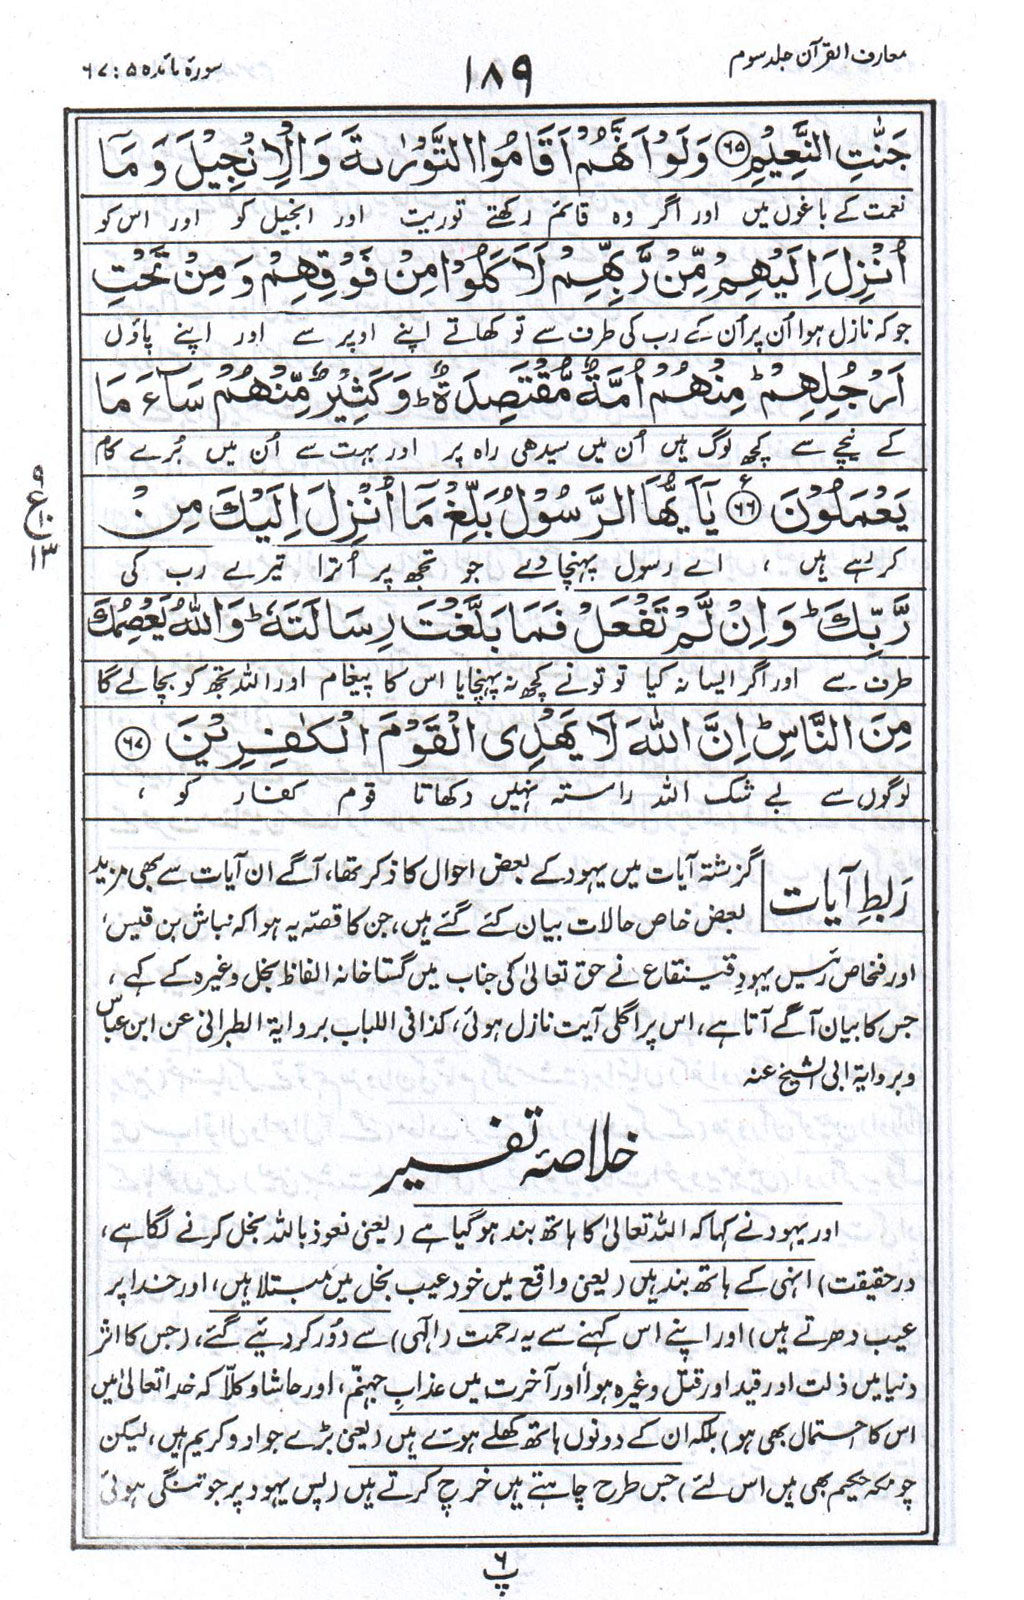 معارف القرآن جلد سوم
۱۸۹
سورۃ مائدہ ۵ : ۶۷
جَنّٰتِ النَّعِيْمِ ﴿۶۵﴾ وَلَوْ اَنَّهُمْ اَقَامُوا التَّوْرٰىةَ وَالْاِنْجِيْلَ وَمَآ
نعمت کے باغوں میں اور اگر وہ قائم رکھتے توریت اور انجیل کو اور اس کو
اُنْزِلَ اِلَيْهِمْ مِّنْ رَّبِّهِمْ لَاَكَلُوْا مِنْ فَوْقِهِمْ وَمِنْ تَحْتِ
جو کہ نازل ہوا اُن پر اُن کے رب کی طرف سے تو کھاتے اپنے اوپر سے اور اپنے پاؤں
اَرْجُلِهِمْ ؕ مِنْهُمْ اُمَّةٌ مُّقْتَصِدَةٌ ؕ وَكَثِيْرٌ مِّنْهُمْ سَآءَ مَا
کے نیچے سے کچھ لوگ ہیں اُن میں سیدھی راہ پر اور بہت سے اُن میں بُرے کام
يَعْمَلُوْنَ ﴿۶۶﴾ يٰٓاَيُّهَا الرَّسُوْلُ بَلِّغْ مَآ اُنْزِلَ اِلَيْكَ مِنْ
ع
۹
۱۰
۱۳
کر رہے ہیں ، اے رسول پہنچا دے جو تجھ پر اُترا تیرے رب کی
رَّبِّكَ ؕ وَاِنْ لَّمْ تَفْعَلْ فَمَا بَلَّغْتَ رِسَالَتَهٗ ؕ وَاللّٰهُ يَعْصِمُكَ
طرف سے اور اگر ایسا نہ کیا تو تو نے کچھ نہ پہنچایا اس کا پیغام اور اللہ تجھ کو بچا لے گا
مِنَ النَّاسِ ؕ اِنَّ اللّٰهَ لَا يَهْدِى الْقَوْمَ الْكٰفِرِيْنَ ﴿۶۷﴾
لوگوں سے بے شک اللہ راستہ نہیں دکھاتا قوم کفار کو ،
ربطِ آیات
گزشتہ آیات میں یہود کے بعض احوال کا ذکر تھا، آگے ان آیات سے بھی مزید
بعض خاص حالات بیان کئے گئے ہیں، جن کا قصّہ یہ ہوا کہ نباش بن قیس
اور فنحاص رئیس یہودِ قینقاع نے حق تعالیٰ کی جناب میں گستاخانہ الفاظ بخل وغیرہ کے کہے ،
جس کا بیان آگے آتا ہے، اس پر اگلی آیت نازل ہوئی، کذا فی اللباب بروایۃ الطبرانی عن ابن عباسؓ
و بروایۃ ابی الشیخ عنہ
خلاصۂ تفسیر
اور یہود نے کہا کہ اللہ تعالیٰ کا ہاتھ بند ہو گیا ہے (یعنی نعوذ باللہ بخل کرنے لگا ہے ،
درحقیقت) انہی کے ہاتھ بند ہیں (یعنی واقع میں خود عیب بخل میں مبتلا ہیں، اور خدا پر
عیب دھرتے ہیں) اور اپنے اس کہنے سے یہ رحمت (الٰہی) سے دُور کر دیئے گئے، (جس کا اثر
دنیا میں ذلت اور قید اور قتل وغیرہ ہوا اور آخرت میں عذابِ جہنّم، اور حاشا و کلّا کہ خدا تعالیٰ میں
اس کا احتمال بھی ہو) بلکہ ان کے دونوں ہاتھ کھلے ہوئے ہیں (یعنی بڑے جواد و کریم ہیں، لیکن
چونکہ حکیم بھی ہیں اس لئے) جس طرح چاہتے ہیں خرچ کرتے ہیں (پس یہود پر جو تنگی ہوئی
پ ۶